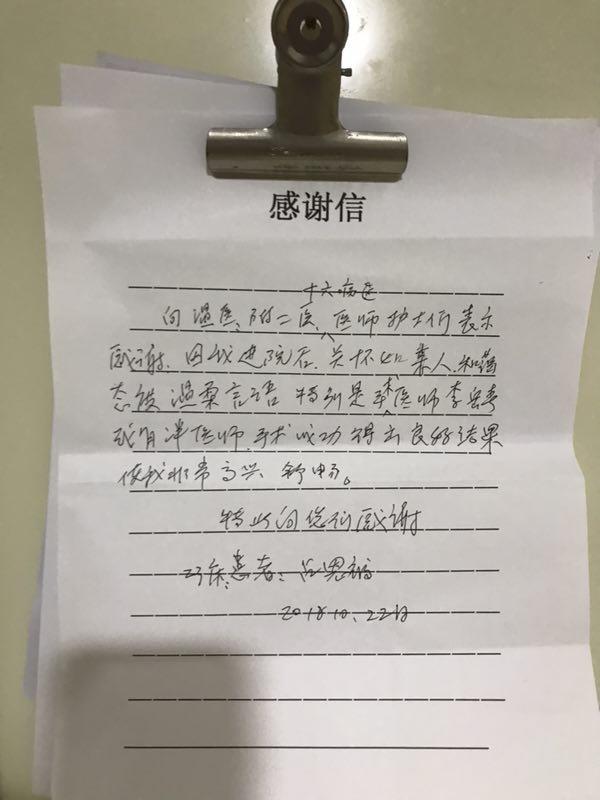 感谢信
十六病区
向温医、附二医、医师护士们表示
感谢，因我进院后，关怀如亲人，和蔼
态度 温柔言语 特别是 医师李
医师，手术成功 得出良好结果
使我非常高兴 舒畅。
特此向您们感谢
23床患者：
2018.10.22日